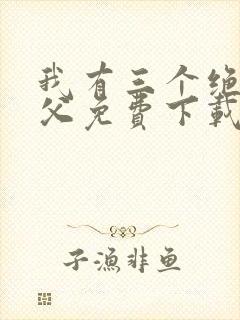 我有三个绝
父免费下载
子渔非鱼